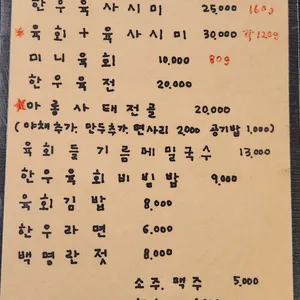 한우육사시미 25,000 160g
*육회+육사시미 30,000 각120g
미니육회 10,000 80g
한우육전 20,000
*아롱사태전골 20,000
(야채추가, 만두추가, 면사리 2,000 공기밥 1,000)
육회들기름메밀국수 13,000
한우육회비빔밥 9,000
육회김밥 8,000
한우라면 6,000
백명란젓 8,000
소주, 맥주 5,000